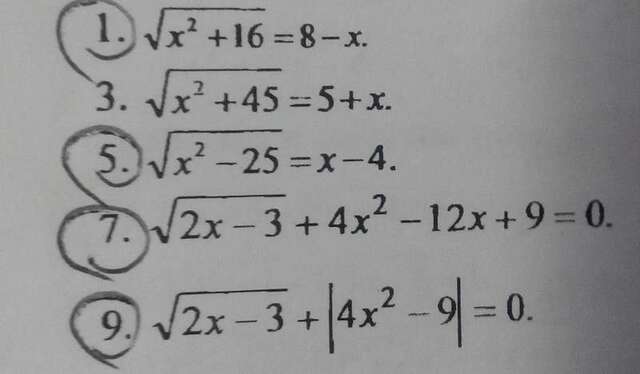 1. √(x² + 16) = 8 − x.
3. √(x² + 45) = 5 + x.
5. √(x² − 25) = x − 4.
7. √(2x − 3) + 4x² − 12x + 9 = 0.
9. √(2x − 3) + |4x² − 9| = 0.